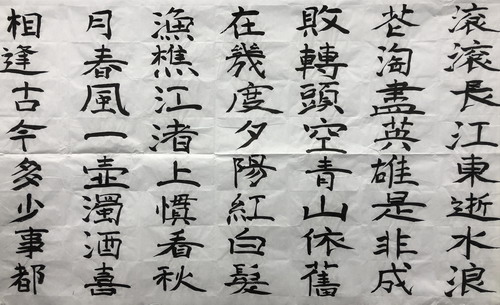 滾滾長江東逝水浪
花淘盡英雄是非成
敗轉頭空青山依舊
在幾度夕陽紅白髮
漁樵江渚上慣看秋
月春風一壺濁酒喜
相逢古今多少事都